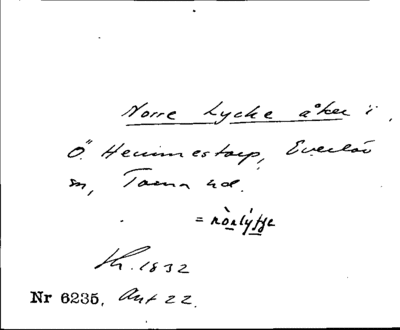 Norre Lycke åker i,
Ö. Hemmestorp, Everlöv
sn, Torna hd.
= 
Kh. 1832
Nr 6235, Ant 22.